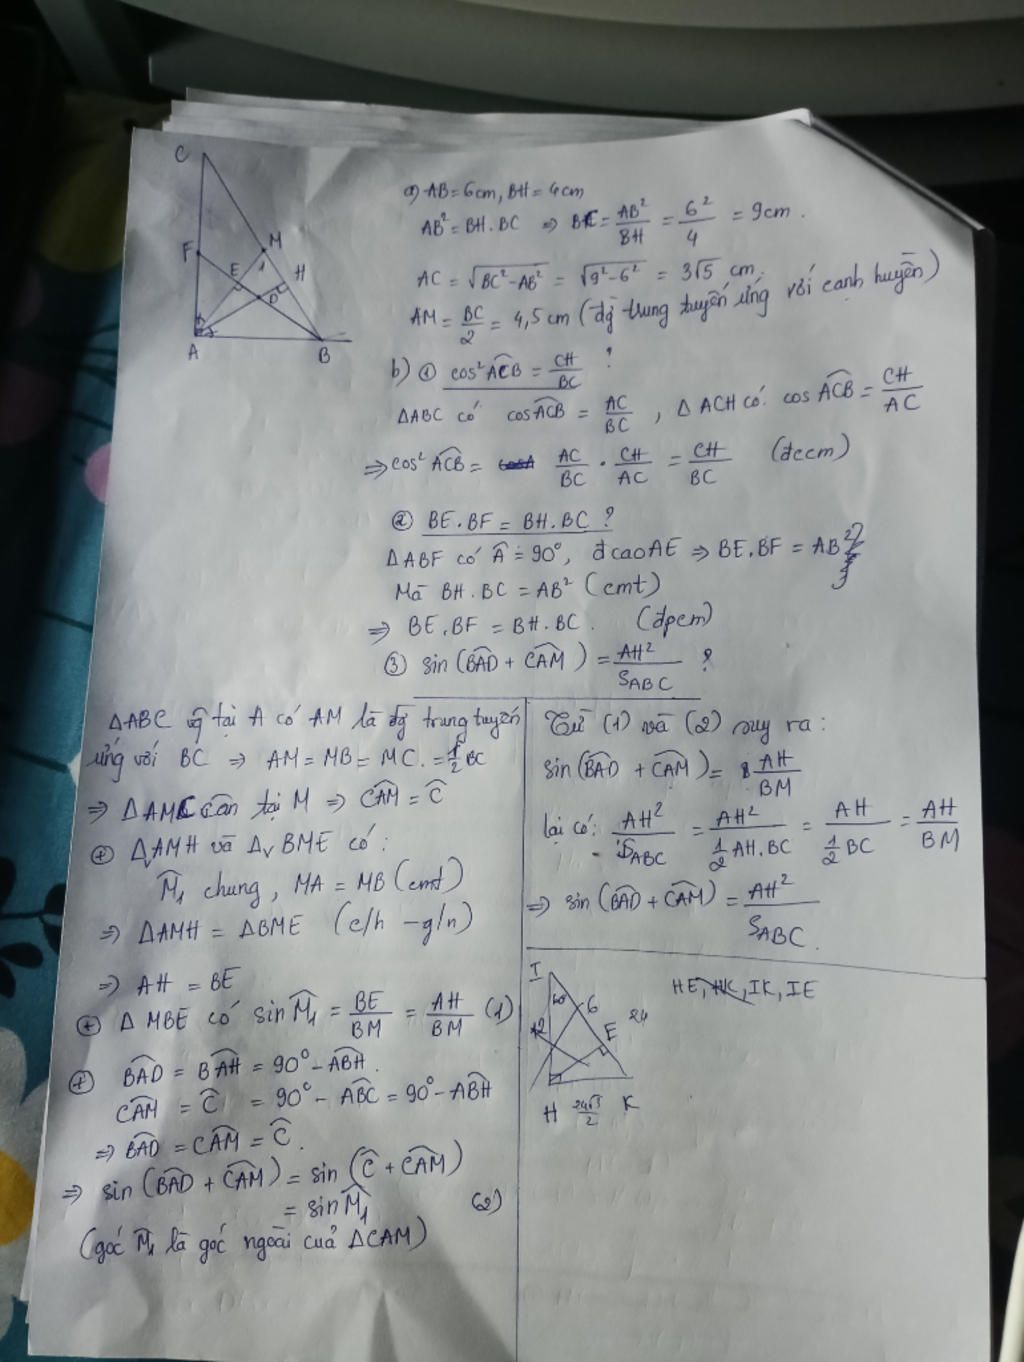 C
F
M
E
1
H
D
A
B
a) AB = 6cm, BH = 4cm
AB² = BH . BC ⇒ BC = AB²/BH = 6²/4 = 9cm .
AC = √(BC² - AB²) = √(9² - 6²) = 3√5 cm.
AM = BC/2 = 4,5 cm (đg trung tuyến ứng với cạnh huyền)
b) ① cos² ACB = CH/BC ?
ΔABC có cos ACB = AC/BC , Δ ACH có: cos ACB = CH/AC
⇒ cos² ACB = AC/BC . CH/AC = CH/BC (đccm)
② BE . BF = BH . BC ?
ΔABF có Â = 90°, đ cao AE ⇒ BE . BF = AB²
Mà BH . BC = AB² (cmt)
⇒ BE . BF = BH . BC . (đpcm)
③ sin (BAD + CAM) = AH²/S_ABC ?
ΔABC vg tại A có AM là đg trung tuyến
ứng với BC ⇒ AM = MB = MC . = 1/2 BC
⇒ ΔAMC cân tại M ⇒ CAM = Ĉ
⊕ Δv AMH và Δv BME có :
M̂₁ chung , MA = MB (cmt)
⇒ ΔAMH = ΔBME (c/h - g/n)
⇒ AH = BE
⊕ Δ MBE có sin M̂₁ = BE/BM = AH/BM (1)
⊕ BAD = BAH = 90° - ABH .
CAM = Ĉ = 90° - ABC = 90° - ABH
⇒ BAD = CAM = Ĉ .
⇒ sin (BAD + CAM) = sin (Ĉ + CAM)
= sin M̂₁ (2)
(góc M̂₁ là góc ngoài cuả ΔCAM)
Từ (1) và (2) suy ra :
sin (BAD + CAM) = AH/BM
lại có: AH²/S_ABC = AH²/(1/2 AH . BC) = AH/(1/2 BC) = AH/BM
⇒ sin (BAD + CAM) = AH²/S_ABC .
HE, HK, IK, IE
I
60°
6
12
E
24
H
24√3/2
K